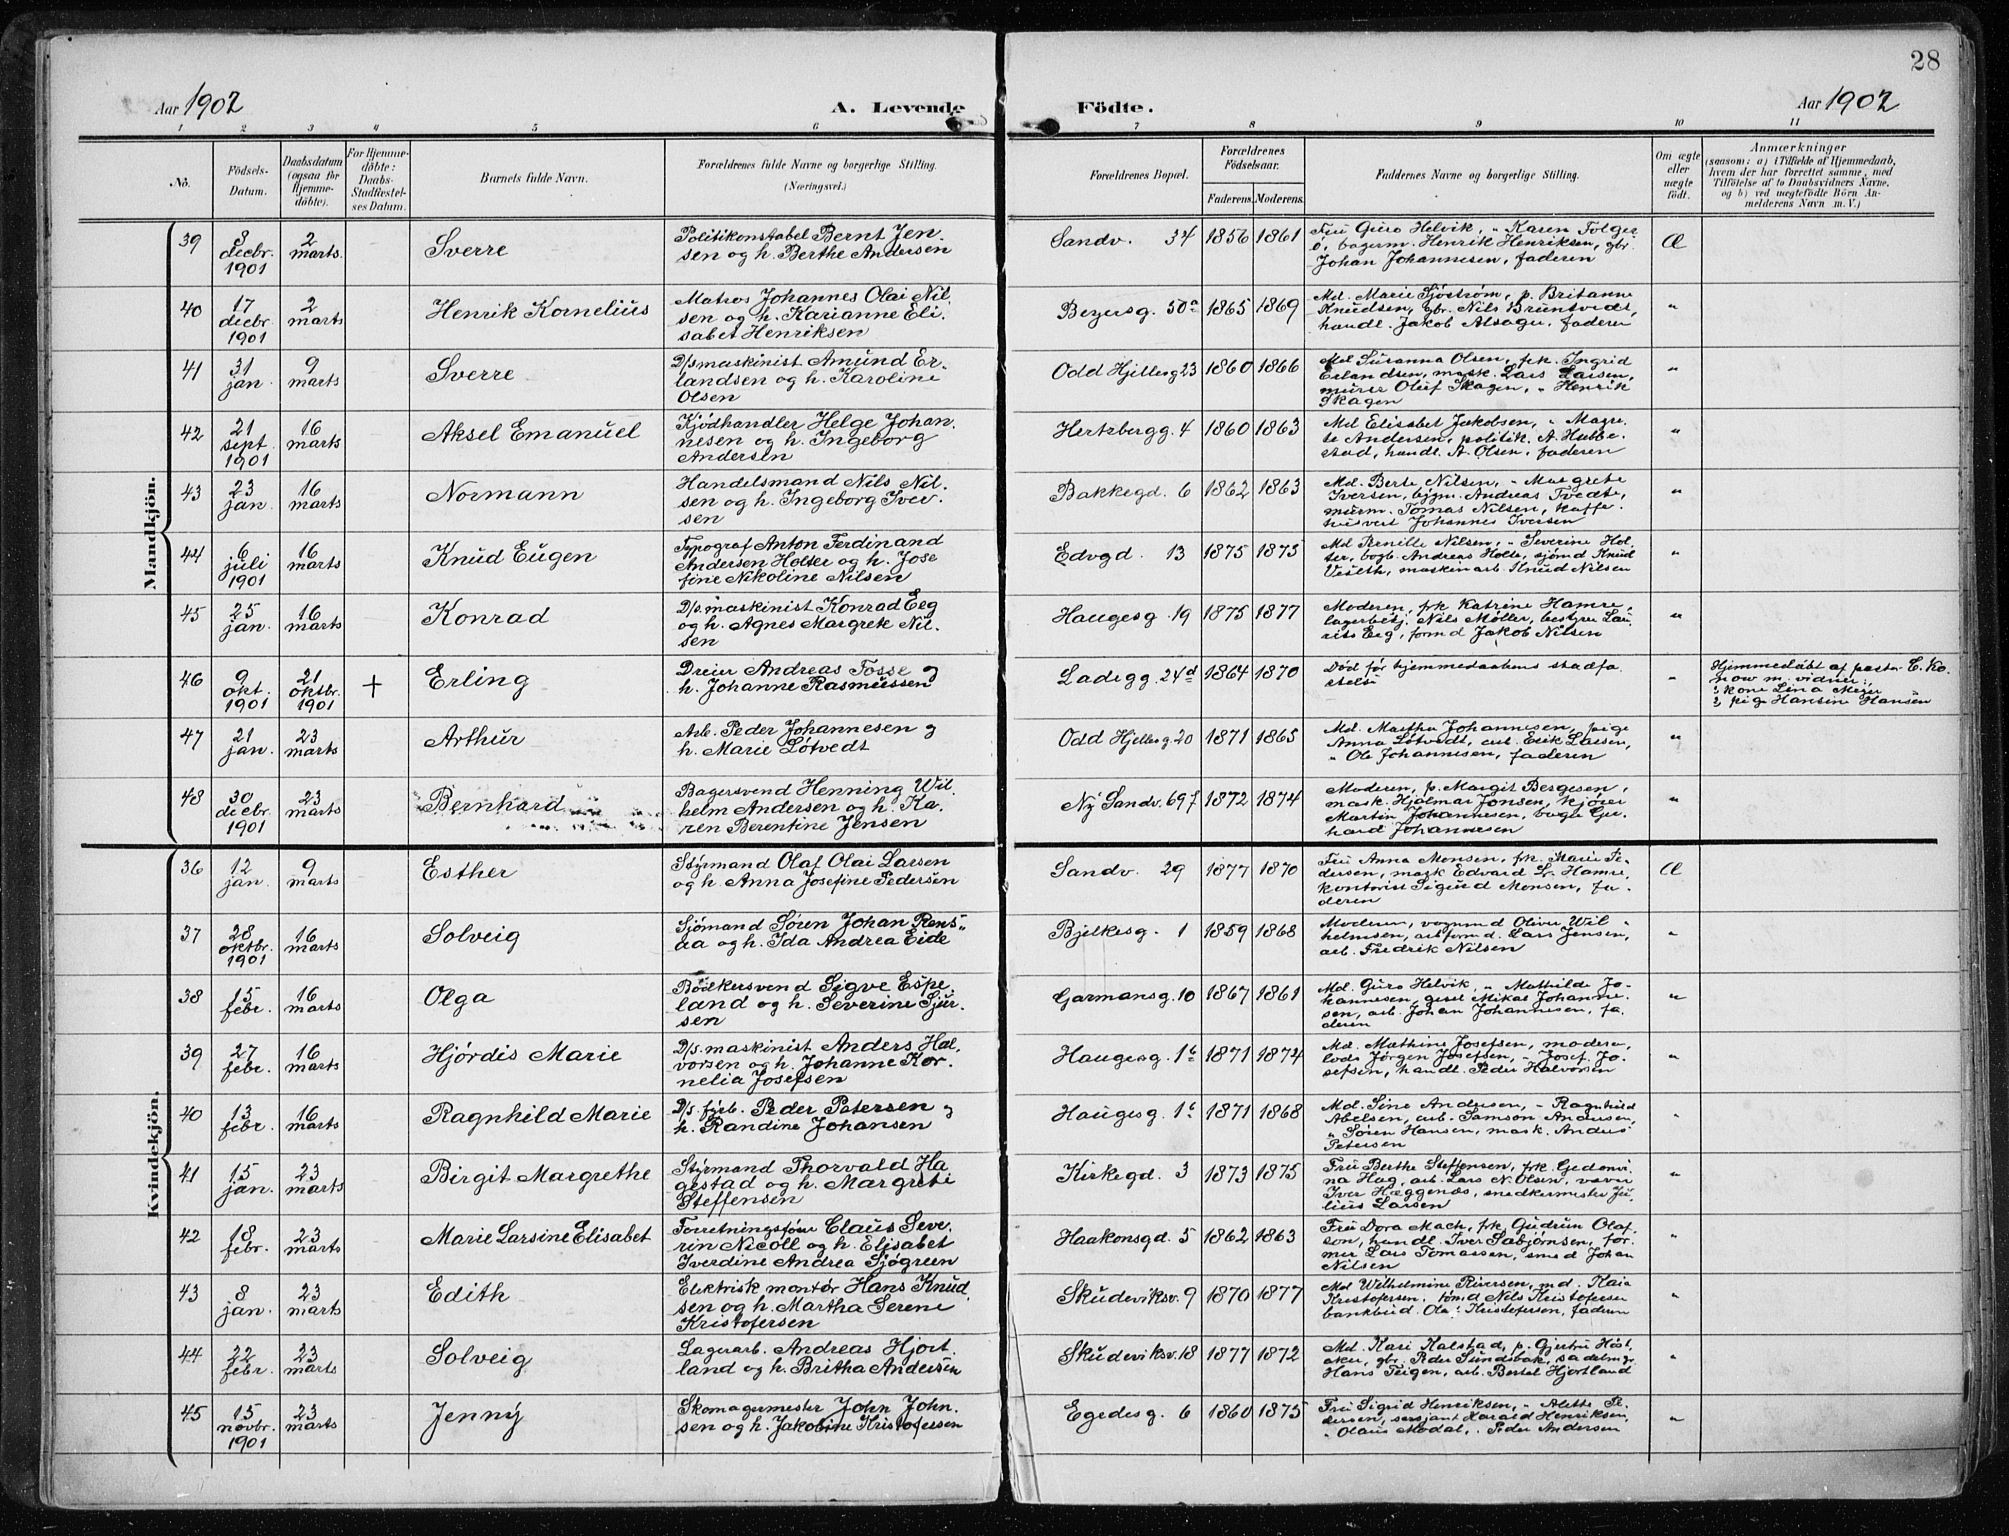 28
Aar 1902
A. Levende Födte.
Aar 1902
1 2 3 4 5 6 7 8 9 10 11
No.
Födsels-Datum.
Daabsdatum (ogsaa for Hjemme-döbte).
For Hjemme-döbte: Daabs-Stadfæstel-ses Datum.
Barnets fulde Navn.
Forældrenes fulde Navne og borgerlige Stilling.
(Næringsvei.)
Forældrenes Bopæl.
Forældrenes Födselsaar.
Faderens. Moderens.
Faddernes Navne og borgerlige Stilling.
Om ægte eller uægte födt.
Anmærkninger
(saasom: a) i Tilfælde af Hjemmedaab,
hvem der har forrettet samme, med
Tilföielse af to Daabsvidners Navne,
og b) ved uægtefödte Börn An-
melderens Navn m. V.)
Mandkjön.
39 8 decbr. 1901 2 marts Sverre
Politikonstabel Bernt Jen-
sen og h. Berthe Andersen
Sandv. 34 1856 1861
Fru Guro Helvik, " Karen Folger
ö, bagerm. Henrik Henriksen, gbr.
Johan Johannesen, faderen
Æ
40 17 decbr. 1901 2 marts Henrik Kornelius
Matros Johannes Olai Nil-
sen og h. Karianne Eli-
sabet Henriksen
Bezersg. 50a 1865 1869
Md. Marie Sjöström, p. Britanne
Knudsen, gbr. Nils Bruntvedt,
handl. Jakob Alsager, faderen
"
41 31 jan. 9 marts Sverre
D/s maskinist Amund Er-
landsen og h. Karoline
Olsen
Odd Hjellesg 23 1860 1866
Md Susanna Olsen, frk. Ingrid
Erlandsen, mask. Lars Larsen,
murer Oluf Skagen, " Henrik
Skagen
"
42 21 sept. 1901 16 marts Aksel Emanuel
Kjödhandler Helge Johan-
nesen og h. Ingeborg
Andersen
Hertzbergg. 4 1860 1863
Md Elisabet Jakobsen, " Magre-
te Andersen, politik. A. Hubbe-
stad, handl. A. Olsen, faderen
"
43 23 jan. 16 marts Normann
Handelsmand Nils Nil-
sen og h. Ingeborg Iver-
sen
Bakkegd. 6 1862 1863
Md. Berte Nilsen, " Margrete
Iversen, bygm. Andreas Tvedte,
murm. Tomas Nilsen, kaffe-
husvert Johannes Iversen
"
44 6 juli 1901 16 marts Knud Eugen
Typograf Anton Ferdinand
Andersen Holter og h. Jose
fine Nikoline Nilsen
Edvgd. 13 1875 1875
Md Pernille Nilsen, " Severine Hol-
ter, bogb. Andreas Holte, sjömd Knud
Veseth, maskinarb. Knud Nilsen
"
45 25 jan. 16 marts Konrad
D/s. maskinist Konrad Eeg
og h. Agnes Margrete Nil-
sen
Haugesg. 19 1875 1877
Moderen, frk Katrine Hamre,
lagerbetj. Nils Møller, bestyrer Lau-
rits Eeg, formd Jakob Nilsen
"
46 9 okt. 1901 21 oktbr. 1901 + Erling
Dreier Andreas Fosse og
h. Johanne Rasmussen
Ladegg. 24d 1864 1870
Død før hjemmedaabens stadfæ-
stelse
"
Hjemmedöbt af pastor C. Ko-
now m. vidner:
1, kone Lina Meyer
2, pige Hansine Hansen
47 21 jan. 23 marts Arthur
Arb. Peder Johannesen og
h. Marie Løtvedt
Odd Hjellesg. 20 1871 1865
Md. Martha Johannesen, pige
Anna Løtvedt, arb. Erik Larsen,
" Ole Johannesen, faderen
"
48 30 decbr. 1901 23 marts Bernhard
Bagersvend Henning Wil-
helm Andersen og h. Ka-
ren Berentine Jensen
Ny Sandv. 69f 1872 1874
Moderen, p. Margit Bergesen,
mask. Hjalmar Jonsen, kjører
Martin Johannesen, bagle Ger-
hard Johannesen
"
Kvindekjön.
36 12 jan. 9 marts Esther
Styrmand Olaf Olai Larsen
og h. Anna Josefine Pedersen
Sandv. 29 1877 1870
Fru Anna Monsen, frk. Marie Pe-
dersen, mask Edvard L. Hamre,
kontorist Sigurd Monsen, fa-
deren
Æ
37 28 oktbr. 1901 16 marts Solveig
Sjömand Søren Johan Rens-
aa og h. Ida Andrea Eide
Bjelkesg. 1 1859 1868
Moderen, vognmd Oliver Wil-
helmsen, arbformd. Lars Jensen,
arb. Fredrik Nilsen
"
38 15 febr. 16 marts Olga
Bödkersvend Sigve Espe-
land og h. Severine Sjur-
sen
Garmansg. 10 1867 1861
Md. Guro Helvik, " Mathilde Jo-
hannesen, gesel Mikal Johanne-
sen, arb. Johan Johannesen, fa-
deren
"
39 27 febr. 16 marts Hjørdis Marie
D/s. maskinist Anders Hal-
vorsen og h. Johanne Kor-
nelia Josefsen
Haugesg. 1c 1871 1874
Md. Mathine Josefsen, moderen,
lods Jørgen Josefsen, " Josef Jo-
sefsen, handl. Peder Halvorsen
"
40 13 febr. 16 marts Ragnhild Marie
D/s. fyrb. Peder Petersen og
h. Randine Johansen
Haugesg. 1c 1871 1868
Md. Sine Andersen, " Ragnhild
Abelsen, arb. Samson Andersen,
" Søren Hansen, mask. Anders
Petersen
"
41 15 jan. 23 marts Birgit Margrethe
Styrmand Thorvald Ha-
gestad og h. Margrete
Steffensen
Kirkegd. 3 1873 1875
Fru Berthe Steffensen, frk. Gedevi-
na Hag, arb. Lars N. Olsen, væver
Iver Hæggenæs, snedkermester Ju-
lius Larsen
"
42 18 febr. 23 marts Marie Larsine Elisabet
Forretningsförer Claus Seve-
rin Nicoll og h. Elisabet
Iverdine Andrea Sjøgreen
Haakonsgd. 5 1862 1863
Fru Dora Mach, frk. Gudrun Olaf-
son, handl. Iver Sabjørnsen, for-
mer Lars Tomassen, smed Johan
Nilsen
"
43 8 jan. 23 marts Edith
Elektrisk montör Hans Knud-
sen og h. Martha Serene
Kristofersen
Skudeviksv. 9 1870 1877
Md Wilhelmine Riversen, md. Kaia
Kristofersen, tømd Nils Kristofersen
bankbud. Ole Kristofersen, faderen
"
44 22 febr. 23 marts Solveig
Lagerarb. Andreas Hjort-
land og h. Britha Andersen
Skudeviksv. 18 1877 1872
Md. Kari Kalstad, p. Gjertru Höst-
aker, gbr. Peder Sundsbak, sadelmgr.
Hans Teigen, arb. Bertel Hjortland
"
45 15 novbr. 1901 23 marts Jenny
Skomagermester John John-
sen og h. Jakobine Kristofersen
Egedesg. 6 1860 1875
Fru Sigrid Henriksen, " Alette Pe-
dersen, sersjant Harald Henriksen,
" Olaus Modal, " Peder Andersen
"